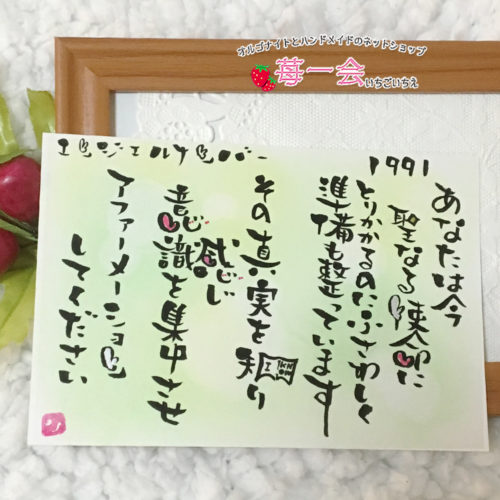 オルゴナイトとハンドメイドのネットショップ
苺一会
いちごいちえ
エンジェルナンバー
1991
あなたは今
聖なる使命に
とりかかるのにふさわしく
準備も整っています
その真実を知り
I KNOW
感じ
意識を集中させ
アファーメーション
してください